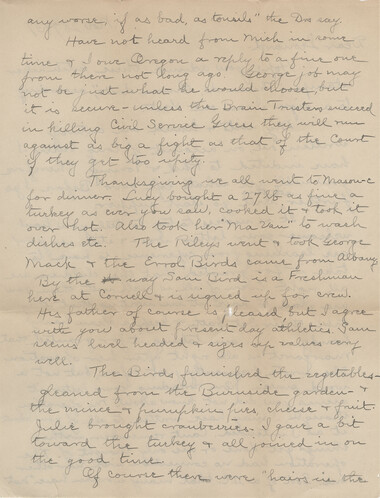 any worse, if as bad, as tonsils" the Drs say.
Have not heard from Mich in some
time & I owe Oregon a reply to a fine one
from there not long ago. George job may
not be just what he would choose, but
it is secure - unless the Brain Trusters succeed
in killing Civil Service Guess they will run
against as big a fight as that of the Court
if they get too upity.
Thanksgiving we all went to
for dinner. Lucy bought a 27lb as fine a
turkey as ever you saw, cooked it & took it
over hot. Also took her to wash
dishes etc. The Rileys went & took George
Mack & the Errol Birds came from Albany
By the way Sam Bird is a Freshman
here at Cornell & is signed up for crew.
His father of course is pleased, but I agree
with you about present day athletics. Sam
seems level headed & signs up values very
well.
The Birds furnished the vegetables -
gleaned from the Burnside garden - &
the mince & pumpkin pies, cheese & fruit.
Julie brought cranberries. I gave a bit
toward the turkey & all joined in on
the good time.
Of course there were "hairs in the